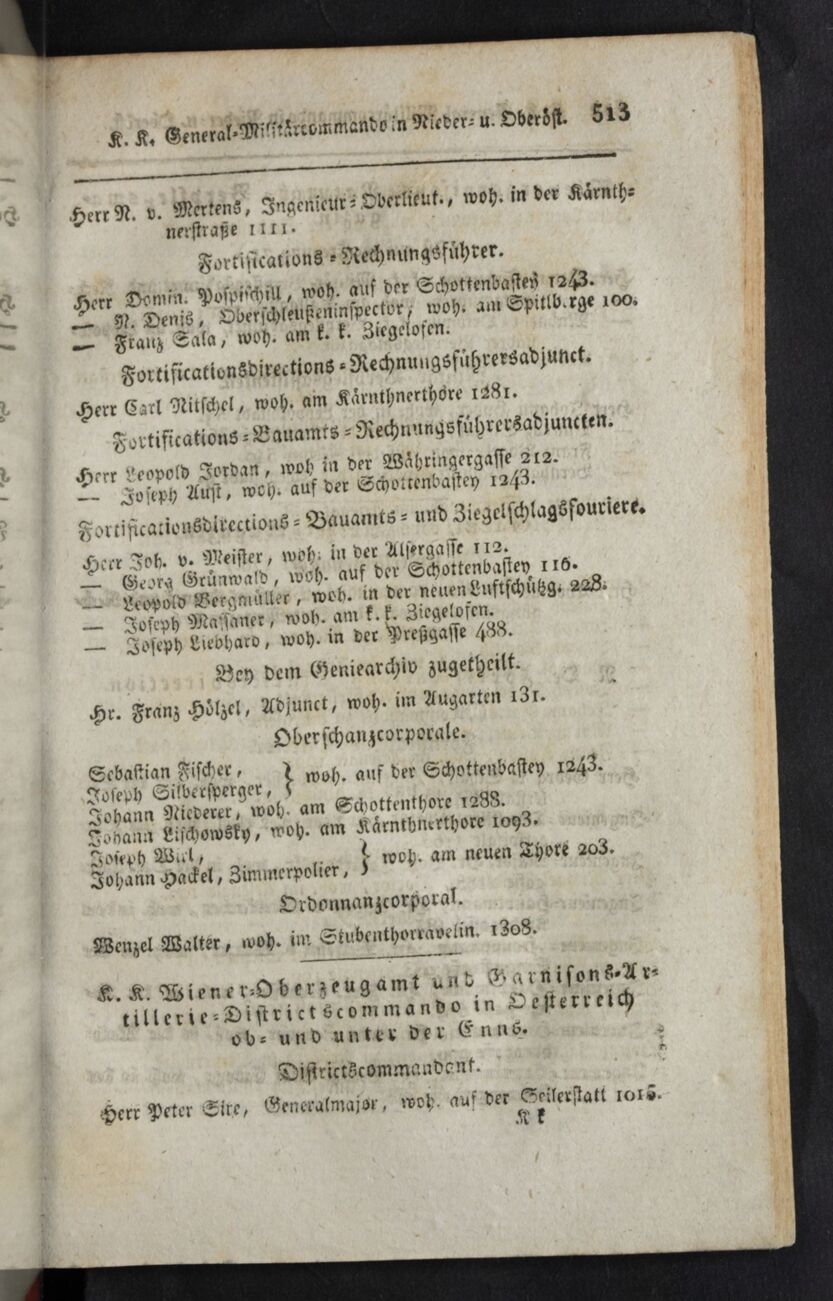 K. K. General-Militärcommando in Nieder- u. Oberöst. 513
Herr N. v. Mertens, Ingenieur-Oberlieut., woh. in der Kärnth-
nerstraße 1111.
Fortifications-Rechnungsführer.
Herr Domin. Pospischill, woh. auf der Schottenbastey 1243.
— N. Denis, Oberschleußeninspector, woh. am Spitlb.rge 100.
— Franz Sala, woh. am k. k. Ziegelofen.
Fortificationsdirections-Rechnungsführersadjunct.
Herr Carl Nitschel, woh. am Kärnthnerthore 1281.
Fortifications-Bauamts-Rechnungsführersadjuncten.
Herr Leopold Jordan, woh in der Währingergasse 212.
— Joseph Aust, woh. auf der Schottenbastey 1243.
Fortificationsdirections-Bauamts- und Ziegelschlagsfouriere.
Herr Joh. v. Meister, woh. in der Alsergasse 112.
— Georg Grünwald, woh. auf der Schottenbastey 116.
— Leopold Bergmüller, woh. in der neuen Luftschützg. 228.
— Joseph Massaner, woh. am k. k. Ziegelofen.
— Joseph Liebhard, woh. in der Preßgasse 488.
Bey dem Geniearchiv zugetheilt.
Hr. Franz Hölzel, Adjunct, woh. im Augarten 131.
Oberschanzcorporale.
Sebastian Fischer, } woh. auf der Schottenbastey 1243.
Joseph Silbersperger,
Johann Niederer, woh. am Schottenthore 1288.
Johann Lischowsky, woh. am Kärnthnerthore 1093.
Joseph } woh. am neuen Thore 203.
Johann Hackel, Zimmerpolier,
Ordonnanzcorporal.
Wenzel Walter, woh. im Stubenthorravelin. 1308.
K. K. Wiener-Oberzeugamt und Garnisons-Ar-
tillerie-Districtscommando in Oesterreich
ob- und unter der Enns.
Districtscommandant.
Herr Peter Sire, Generalmajor, woh. auf der Seilerstatt 1015.
K k